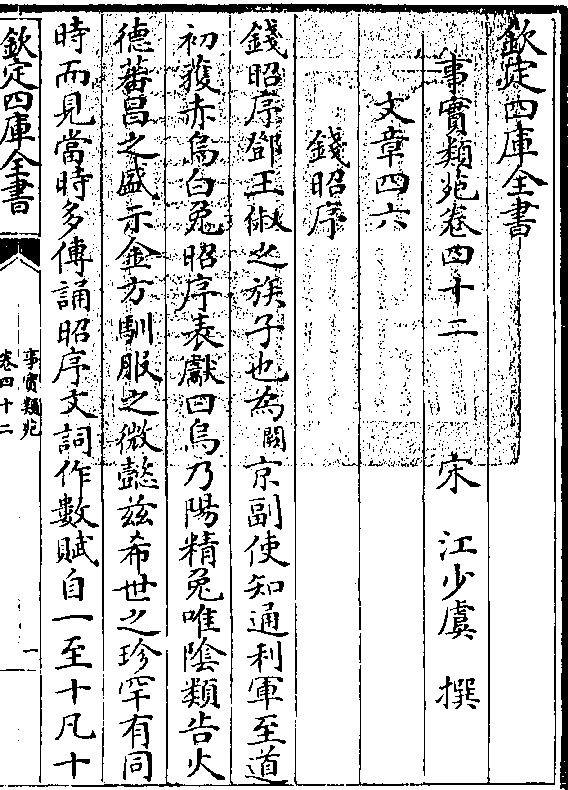 欽定四庫全書
事實類苑卷四十二　宋　江少虞　撰
文章四六
錢昭序
錢昭序鄧王俶之族子也為闕京副使知通利軍至道
初獲赤烏白兔昭序表獻曰烏乃陽精兔唯陰類告火
德蕃昌之盛示金方馴服之徵懿茲希世之珍罕有同
時而見當時多傳誦昭序文詞作數賦自一至十凡十
欽定四庫全書
事實類苑
卷四十二
一